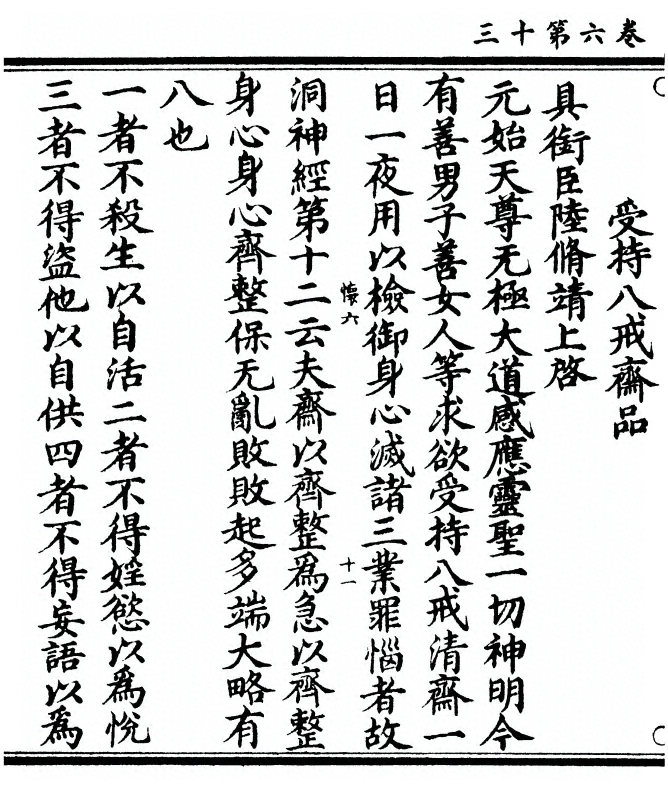 卷六第十三
受持八戒齋品
具銜臣陸脩靖上啓
元始天尊无極大道感應靈聖一切神明今
有善男子善女人等求欲受持八戒清齋一
日一夜用以檢御身心滅諸三業罪惱者故
懷六
十一
洞神經第十二云夫齋以齊整爲急以齊整
身心身心齊整保无亂敗敗起多端大略有
八也
一者不殺生以自活二者不得婬慾以爲悅
三者不得盜他以自供四者不得妄語以爲